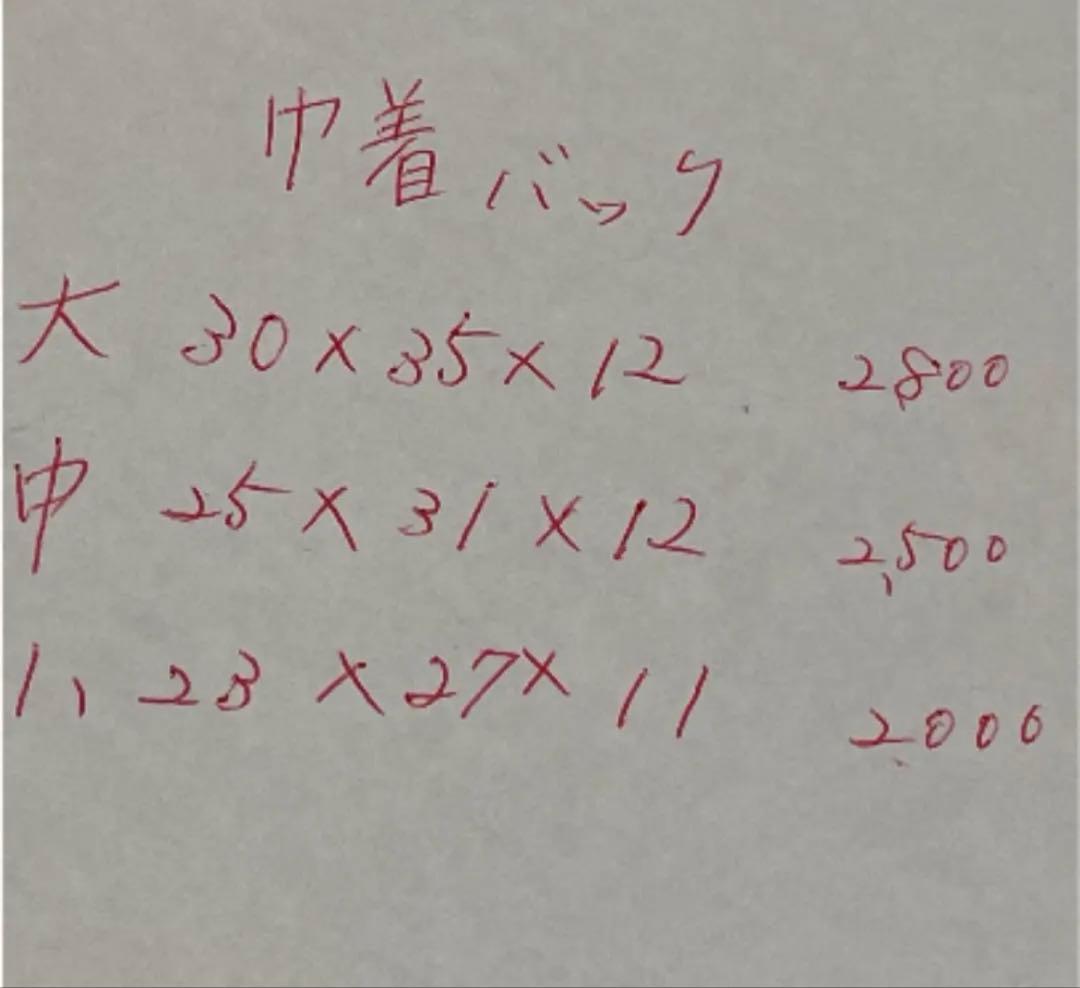 巾着バック
大 30×35×12 2,800
中 25×31×12 2,500
小 23×27×11 2,000